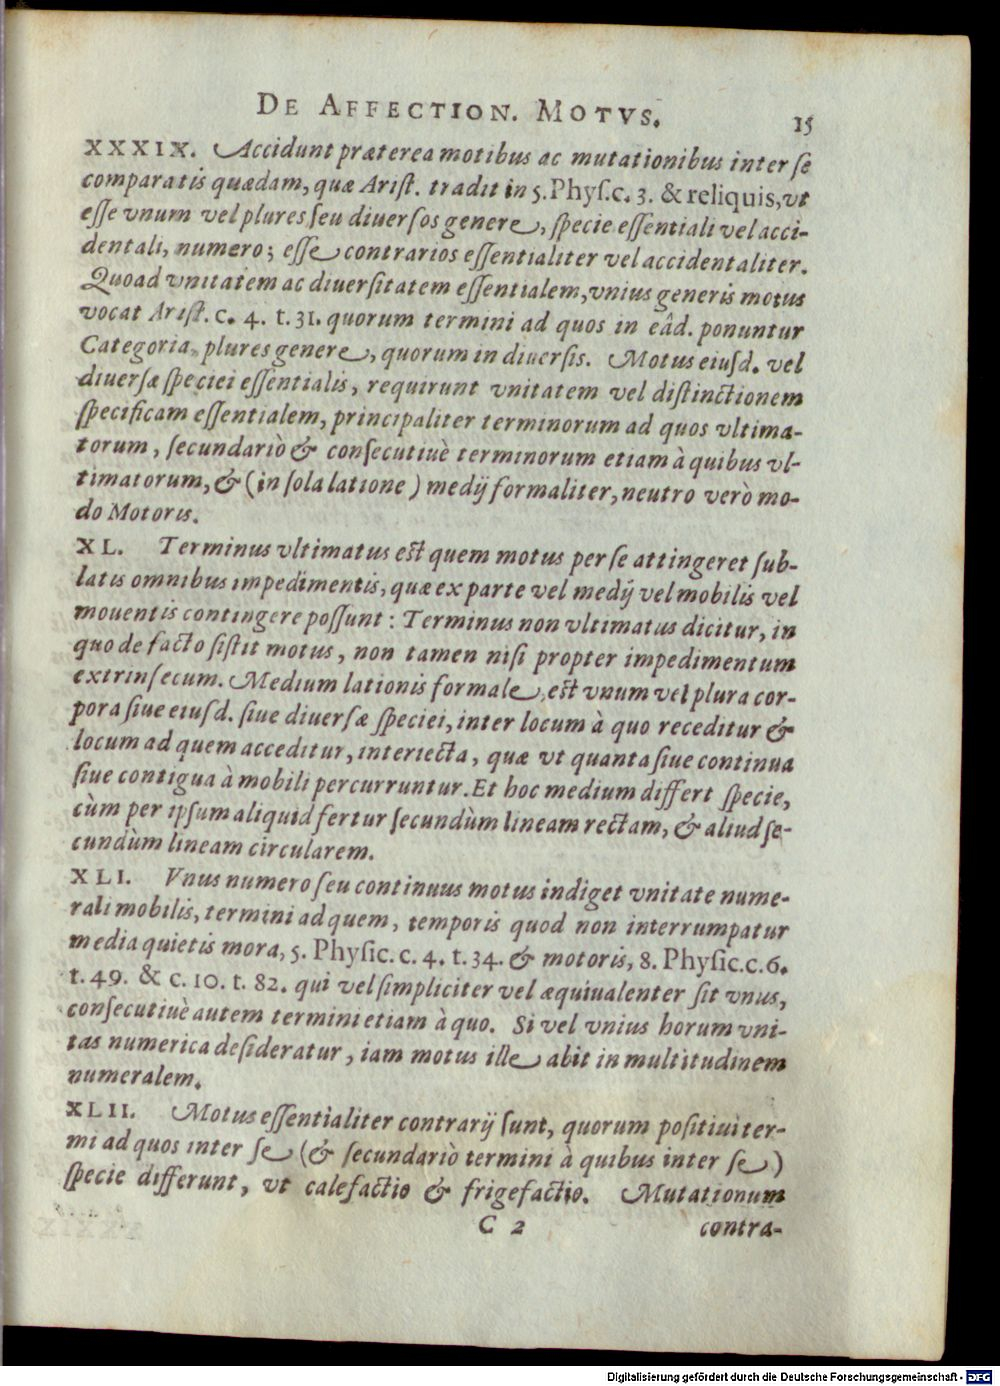 DE AFFECTION. MOTVS. 15
XXXIX. Accidunt præterea motibus ac mutationibus inter ſe
comparatis quædam, quæ Ariſt. tradit in 5. Phyſ.c. 3. & reliquis, vt
eſſe vnum vel plures ſeu diuerſos genere, ſpecie eſſentiali vel acci-
dentali, numero; eſſe contrarios eſſentialiter vel accidentaliter.
Quoad vnitatem ac diuerſitatem eſſentialem, vnius generis motus
vocat Ariſt. c. 4. t. 31. quorum termini ad quos in eâd. ponuntur
Categoria, plures genere, quorum in diuerſis. Motus eiuſd. vel
diuerſæ ſpeciei eſſentialis, requirunt vnitatem vel diſtinctionem
ſpecificam eſſentialem, principaliter terminorum ad quos vltima-
torum, ſecundariò & conſecutiuè terminorum etiam à quibus vl-
timatorum, & (in ſola latione) medij formaliter, neutro verò mo-
do Motoris.
XL. Terminus vltimatus eſt quem motus per ſe attingeret ſub-
latis omnibus impedimentis, quæ ex parte vel medij vel mobilis vel
mouentis contingere poſſunt: Terminus non vltimatus dicitur, in
quo de facto ſiſtit motus, non tamen niſi propter impedimentum
extrinſecum. Medium lationis formale, eſt vnum vel plura cor-
pora ſiue eiuſd. ſiue diuerſæ ſpeciei, inter locum à quo receditur &
locum ad quem acceditur, interiecta, quæ vt quanta ſiue continua
ſiue contigua à mobili percurruntur. Et hoc medium differt ſpecie,
cùm per ipſum aliquid fertur ſecundùm lineam rectam, & aliud ſe-
cundùm lineam circularem.
XLI. Vnus numero ſeu continuus motus indiget vnitate nume-
rali mobilis, termini ad quem, temporis quod non interrumpatur
media quietis mora, 5. Phyſic. c. 4. t. 34. & motoris, 8. Phyſic.c.6.
t. 49. & c. 10. t. 82. qui vel ſimpliciter vel æquiualenter ſit vnus,
conſecutiuè autem termini etiam à quo. Si vel vnius horum vni-
tas numerica deſideratur, iam motus ille abit in multitudinem
numeralem.
XLII. Motus eſſentialiter contrarij ſunt, quorum poſitiui ter-
mi ad quos inter ſe (& ſecundariò termini à quibus inter ſe)
ſpecie differunt, vt calefactio & frigefactio. Mutationum
C 2 contra-
Digitalisierung gefördert durch die Deutsche Forschungsgemeinschaft - DFG